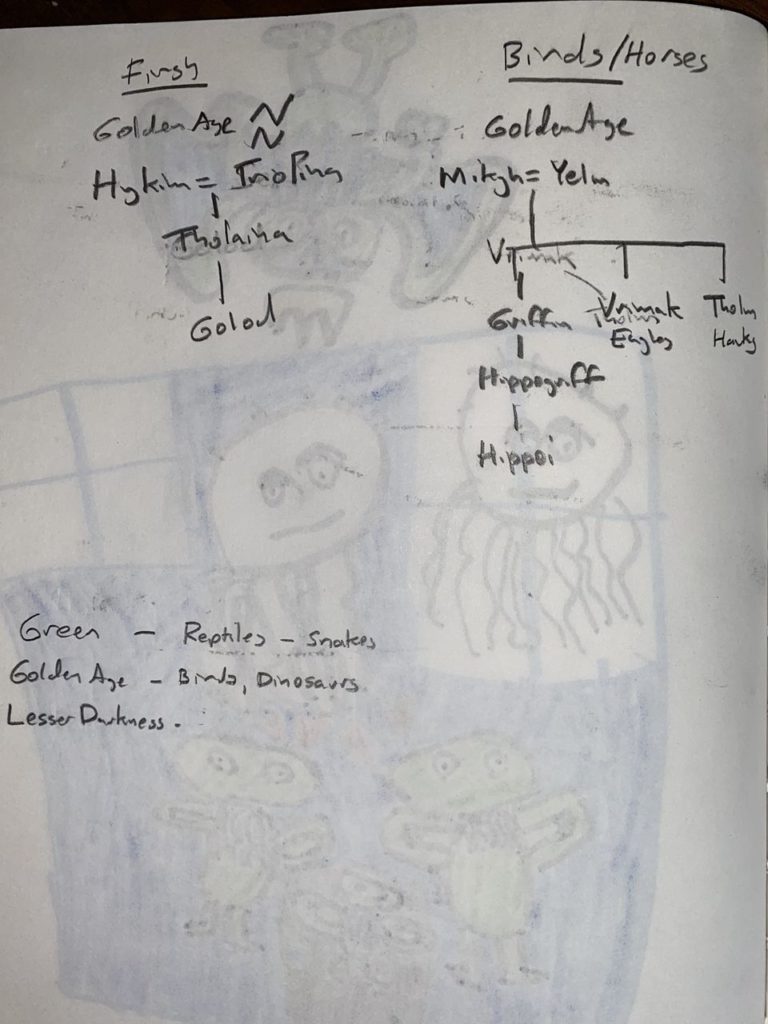 Firsh
Golden Age
Hykim =
Tholaina
Golod
Birds/Horses
Golden Age
Mikyh = Yelm
Vrimak
Griffin
Vrimak
Eagles
Tholm
Hawks
Hippogriff
Hippoi
Green - Reptiles - Snakes
Golden Age - Birds, Dinosaurs
Lesser Darkness.